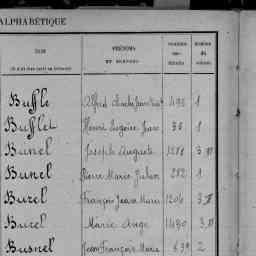 ALPHABÉTIQUE
NOM
PRÉNOMS
NUMÉROS
Buffle Alfred 495 1
Bufflet Henri Eugène Jean 30 1
Bunel Joseph Auguste 1288 3
Bunel Pierre Marie Julien 282 1
Burel François Jean Marie 1206 3
Burel Marie Ange 1490 3
Busnel Jean François Marie 639 2